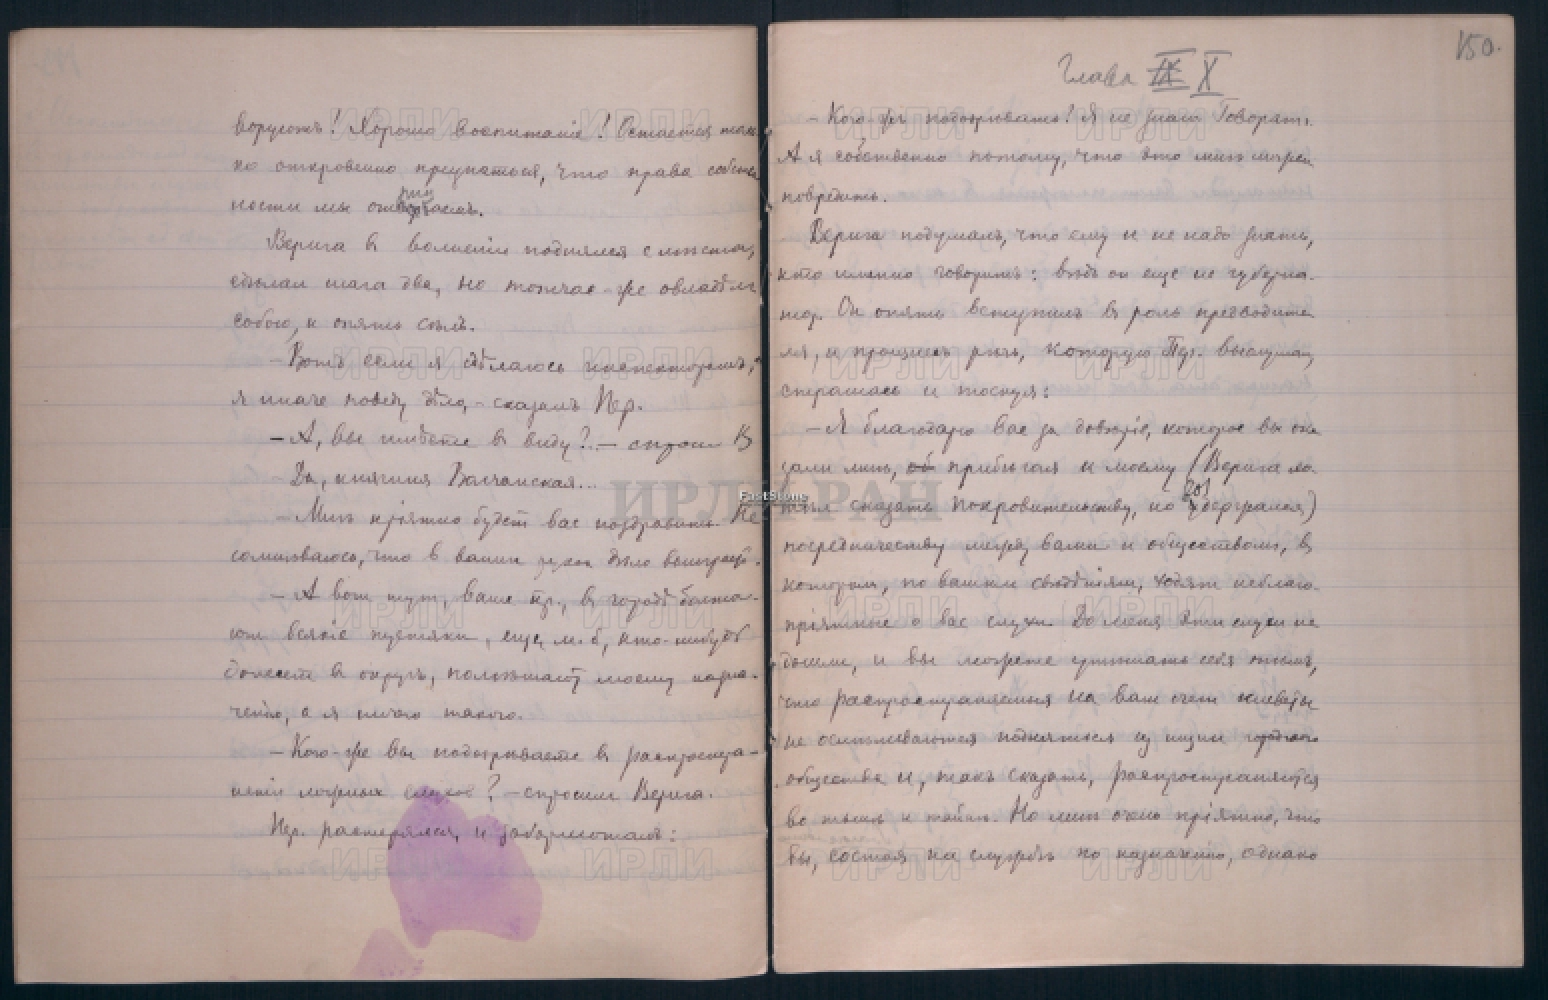 ворують! Хорошо воспитаніе! Остается толь
ко откровенно признаться, что права собствен
ности мы отвергаемъ.
при
Верига въ волненіи поднялся с мѣста,
сдѣлал шага два, но тотчас-же овладѣлъ
собою, и опять сѣлъ.
– Вотъ если я сдѣлаюсь инспекторомъ,
я иначе поведу дѣло, – сказалъ Пер.
– А, вы имѣете в виду? – спросил В
– Да, княгиня Волчанская...
– Мнѣ пріятно будетъ вас поздравить. Не
сомнѣваюсь, что в ваших руках дѣло выиграет.
– А вот тут, ваше пр., в городѣ болта-
ют всякіе пустяки, еще, м. б., кто-нибудь
донесет в округъ, помѣшают моему назна-
ченію, а я ничего такого.
– Кого-же вы подозрѣваете в распростра-
неніи ложных слухов? – спросил Верига.
Пер. растерялся, и забормоталъ:
150.
Глава IX X
– Кого-жъ подозрѣвать! Я не знаю. Говорятъ.
А я собственно потому, что это мнѣ может
повредить.
Верига подумалъ, что ему и не надо знать,
кто именно говоритъ: вѣдь он еще не губерна-
тор. Он опять вступилъ в роль предводите
ля, и произнесъ рѣчь, которую Пер. выслушал,
страшась и тоскуя:
– Я благодарю вас за довѣріе, которое вы ока
зали мнѣ, об прибѣгая к моему (Верига хо-
тѣл сказать покровительству, но воздержался)
посредничеству между вами и обществомъ, в
котором, по вашим свѣдѣніям, ходят неблаго-
пріятные о вас слухи. До меня эти слухи не
дошли, и вы можете утѣшать себя тѣмъ,
что распространяемыя на ваш счет клеветы
не осмѣливаются подняться из низин городского
общества и, такъ сказать, распространяются
во тьмѣ и тайнѣ. Но мнѣ очень пріятно, что
вы, состоя на службѣ по назначенію, однако
ИРЛИ РАН
ИРЛИ
FastStone